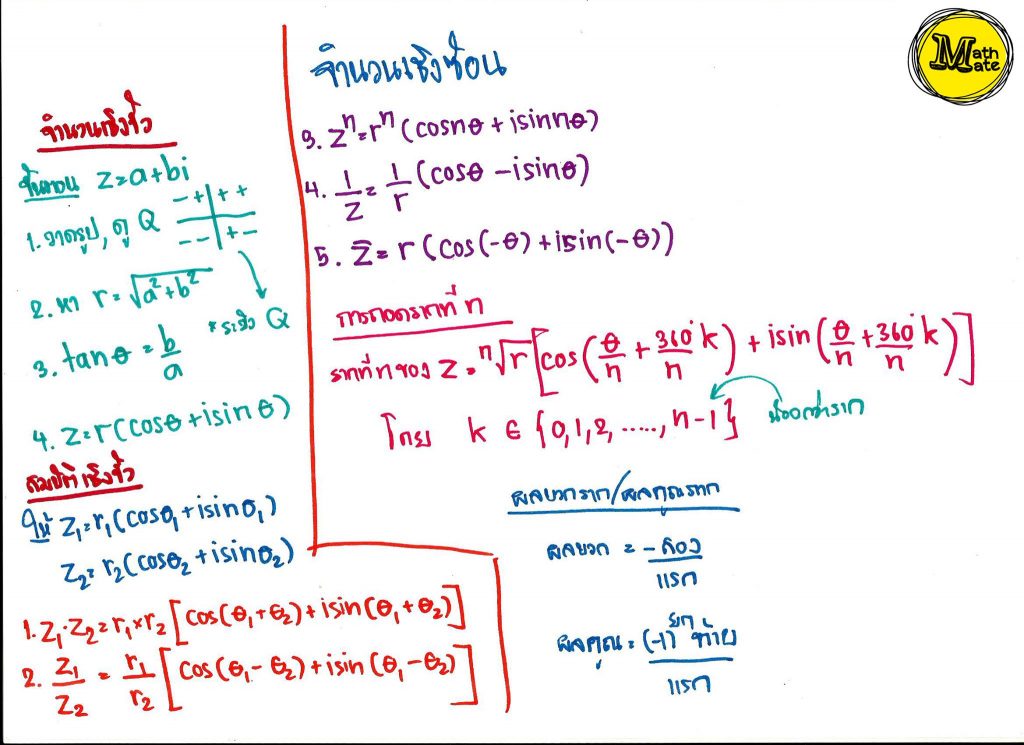 จำนวนเชิงซ้อน
Math
Mate
จำนวนเชิงขั้ว
ขั้นตอน z=a+bi
1. วาดรูป, ดู Q
- + + +
- - + -
2. หา r = √a²+b²
* ระวัง Q
3. tanθ = b/a
4. z=r(cosθ+isinθ)
สมบัติเชิงขั้ว
ให้ z₁=r₁(cosθ₁+isinθ₁)
z₂=r₂(cosθ₂+isinθ₂)
1. z₁·z₂=r₁×r₂[cos(θ₁+θ₂)+isin(θ₁+θ₂)]
2. z₁/z₂ = r₁/r₂[cos(θ₁-θ₂)+isin(θ₁-θ₂)]
3. zⁿ=rⁿ(cosnθ+isinnθ)
4. 1/z = 1/r(cosθ-isinθ)
5. z̄=r(cos(-θ)+isin(-θ))
การถอดรากที่ n
รากที่ n ของ z = ⁿ√r[cos(θ/n + 360°k/n) + isin(θ/n + 360°k/n)]
โดย k ∈ {0,1,2,.....,n-1}
น้อยกว่าราก
ผลบวกราก/ผลคูณราก
ผลบวก = -สอง/แรก
ผลคูณ = (-1)ยกท้าย/แรก